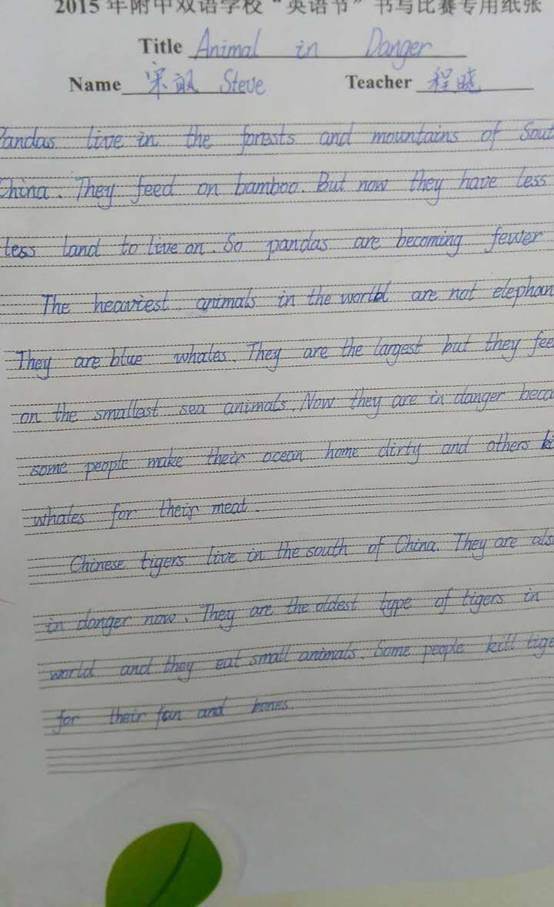 2015年附中双语学校“英语节”书写比赛专用纸张
Title Animal in Danger
Name Steve Teacher 程晓
Pandas live in the forests and mountains of Sout
China. They feed on bamboo. But now they have less
less land to live on. So pandas are becoming fewer
The heaviest animals in the world are not elephan
They are blue whales. They are the largest but they fee
on the smallest sea animals. Now they are in danger beca
some people make their ocean home dirty and others ki
whales for their meat.
Chinese tigers live in the south of China. They are als
in danger now. They are the oldest type of tigers in
world and they eat small animals. Some people kill tige
for their and bones.